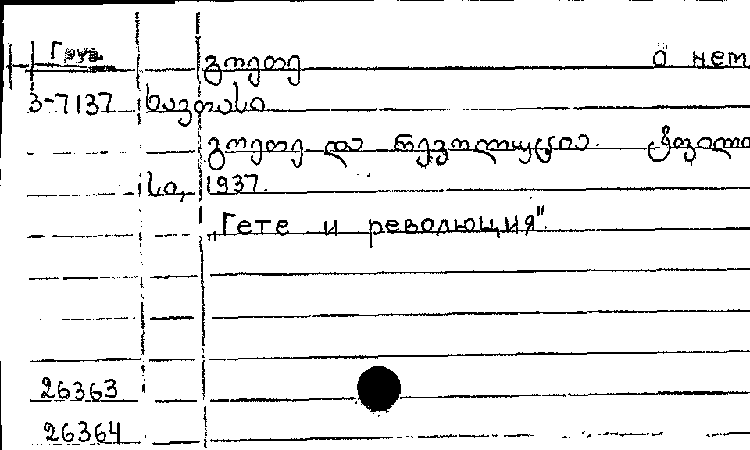 Груз. გოეთე о нем
3-7137
გოეთე და რევოლუცია.
1937.
„Гете и революция"
26363
26364